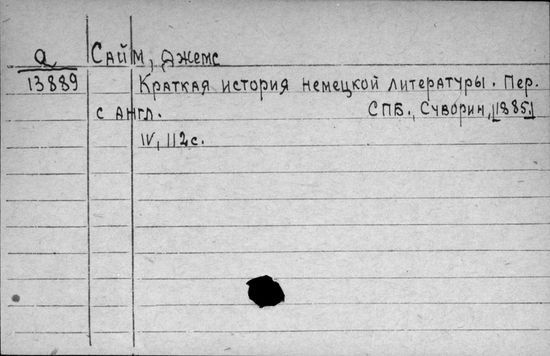 Q Сайм, Джемс
13889 Краткая история немецкой литературы. Пер.
с англ. СПБ., Суворин, |1885.|
IV, 112 с.